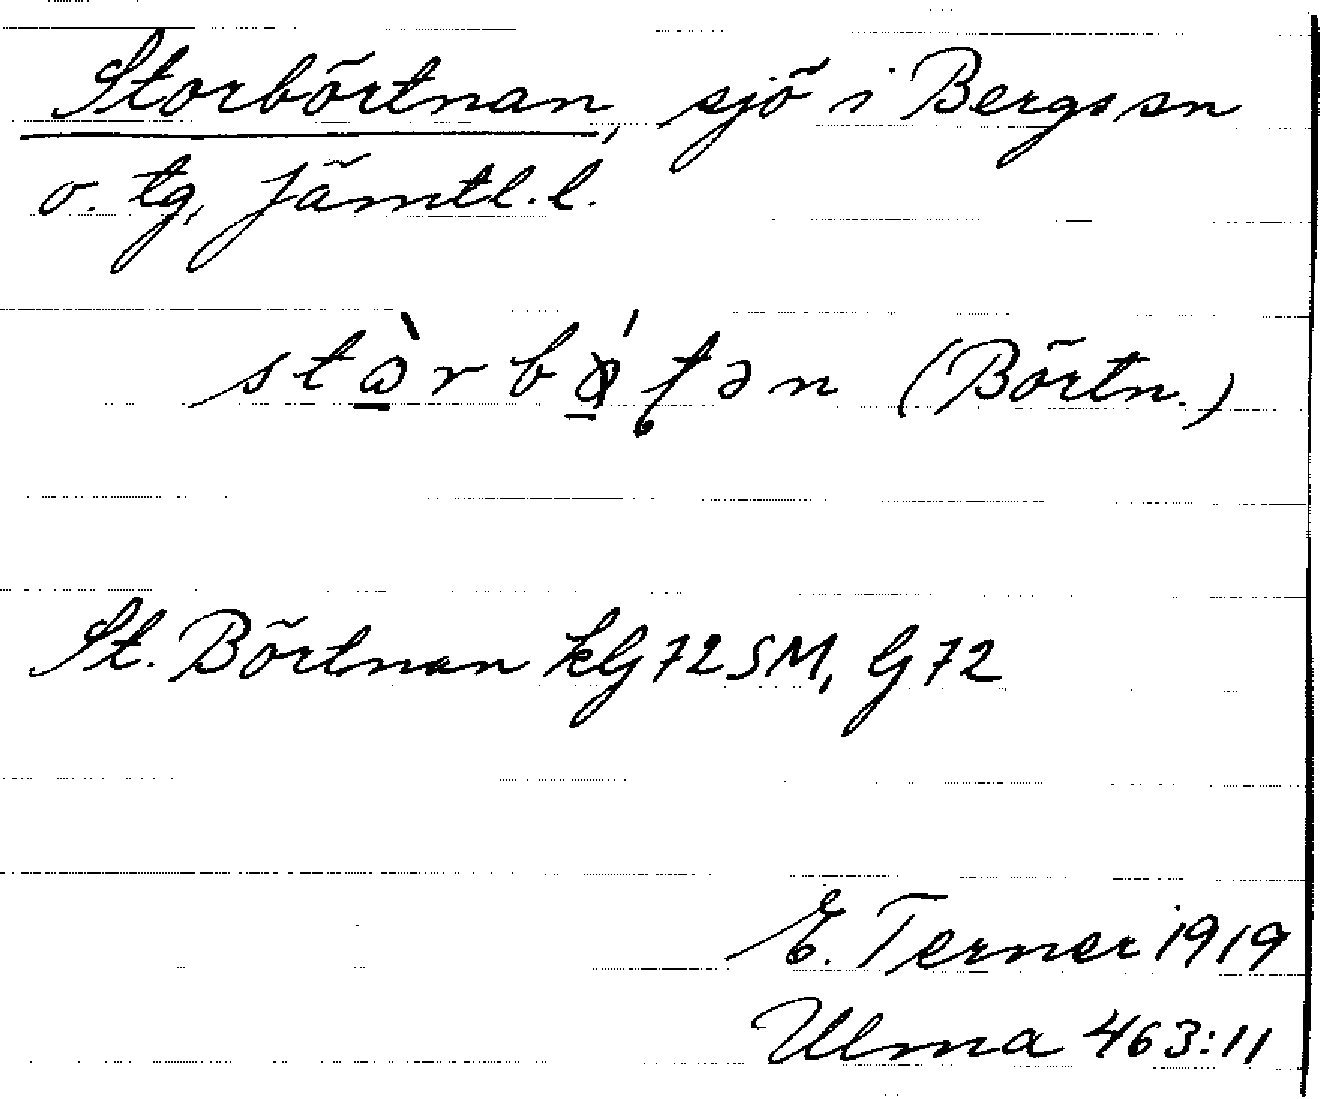 Storbörtnan, sjö i Bergs sn
o. tg, Jämtl. l.
(Börtn.)
St. Börtnan kG 72 SM, G 72
E. Terner 1919
Ulma 463:11